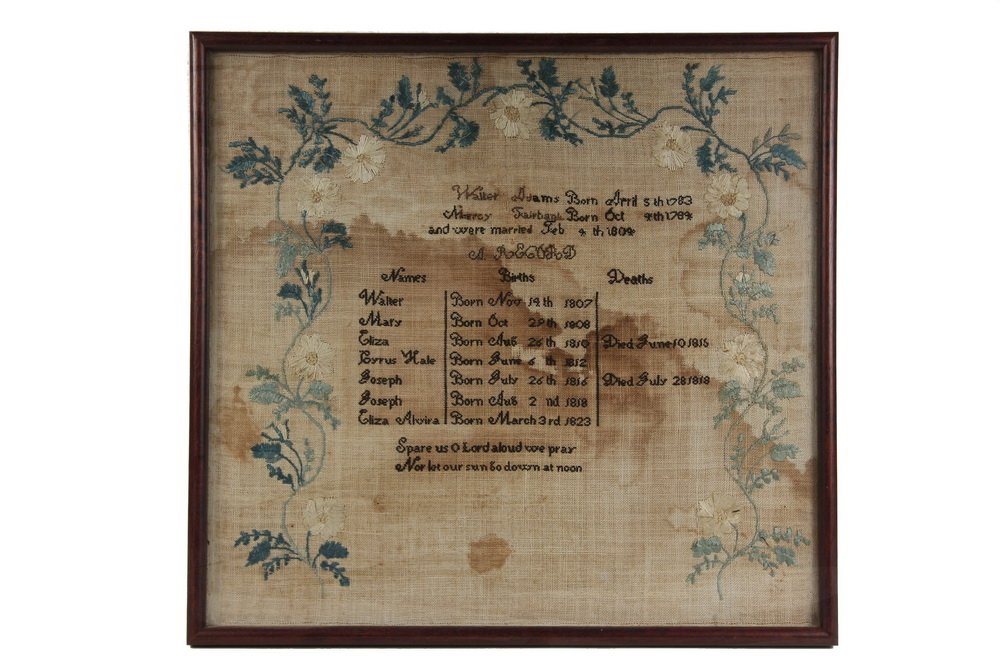 Walter Adams Born April 5th 1783
Mercy Fairbank Born Oct 4th 1784
and were married Feb 4th 1804
A RECORD
Names Births Deaths
Walter Born Nov 14th 1807
Mary Born Oct 29th 1808
Eliza Born Aug 26th 1810 Died June 10 1815
Cyrus Hale Born June 6th 1812
Joseph Born July 26th 1816 Died July 28 1818
Joseph Born Aug 2nd 1818
Eliza Alvira Born March 3rd 1823
Spare us O Lord aloud we pray
Nor let our sun go down at noon